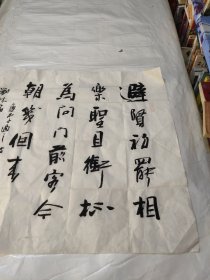 避賢初罷相
樂聖且銜杯
為問门前客今
朝幾個來